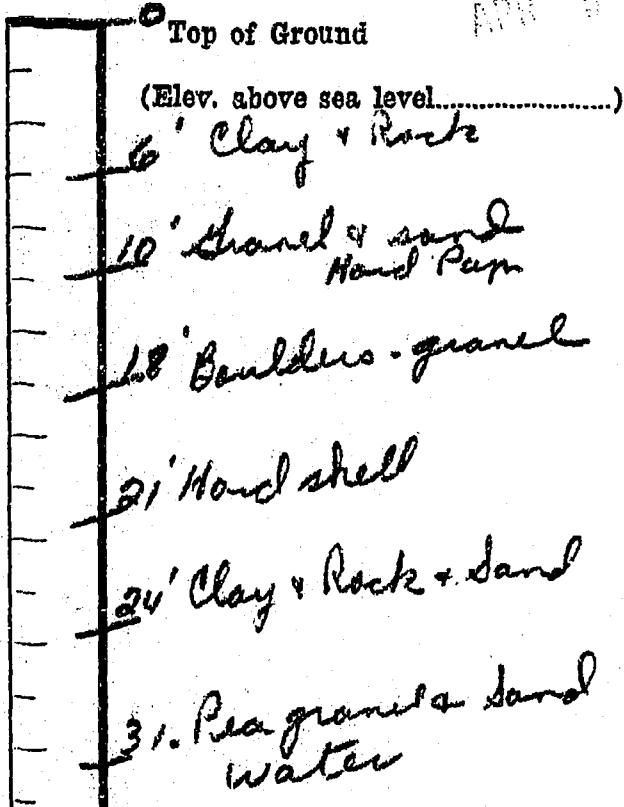 0 Top of Ground
(Elev. above sea level......................)
6' Clay & Rock
10' Gravel & sand
Hard Pan
18' Boulders - gravel
21' Hard shell
24' Clay & Rock & Sand
31. Pea gravel & Sand
Water